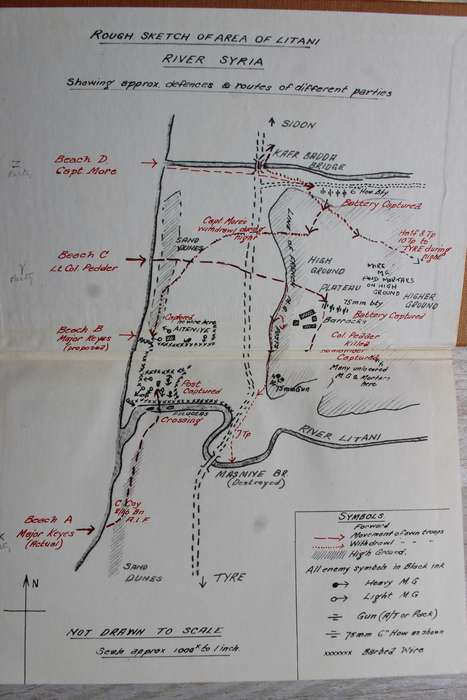 ROUGH SKETCH OF AREA OF LITANI
RIVER SYRIA
Showing approx. defences & routes of different parties
SIDON
KAFR BADDA
BRIDGE
Beach D
Capt More
6" How Bty
Battery Captured
Capt More's
withdrawl during
night
Half 8 Tp
10 Tp to
TYRE during
night
SAND
DUNES
HIGH
GROUND
WIRE
M.G.
AND MORTARS
ON HIGH
GROUND
HIGHER
GROUND
Beach C
Lt Col Pedder
PLATEAU
75mm bty
Battery Captured
Barracks
Captured
AITENIYE
Beach B
Major Keyes
(proposed)
Col Pedder
Killed
Captured
Many unlocated
M.G & Mortars
here
Post
Captured
75mm Gun
Crossing
7 Tp
RIVER LITANI
MASNIYE BR
(Destroyed)
C Coy
Bn
R.I.F
Beach A
Major Keyes
(Actual)
SAND
DUNES
TYRE
N
NOT DRAWN TO SCALE
Scale approx 1000x to 1 inch.
SYMBOLS
Forward
Movement of own troops
Withdrawl " "
High Ground.
All enemy symbols in Black ink
Heavy M.G
Light M.G
Gun (A/T or Pack)
75mm 6" How as shown
xxxxxxx Barbed Wire